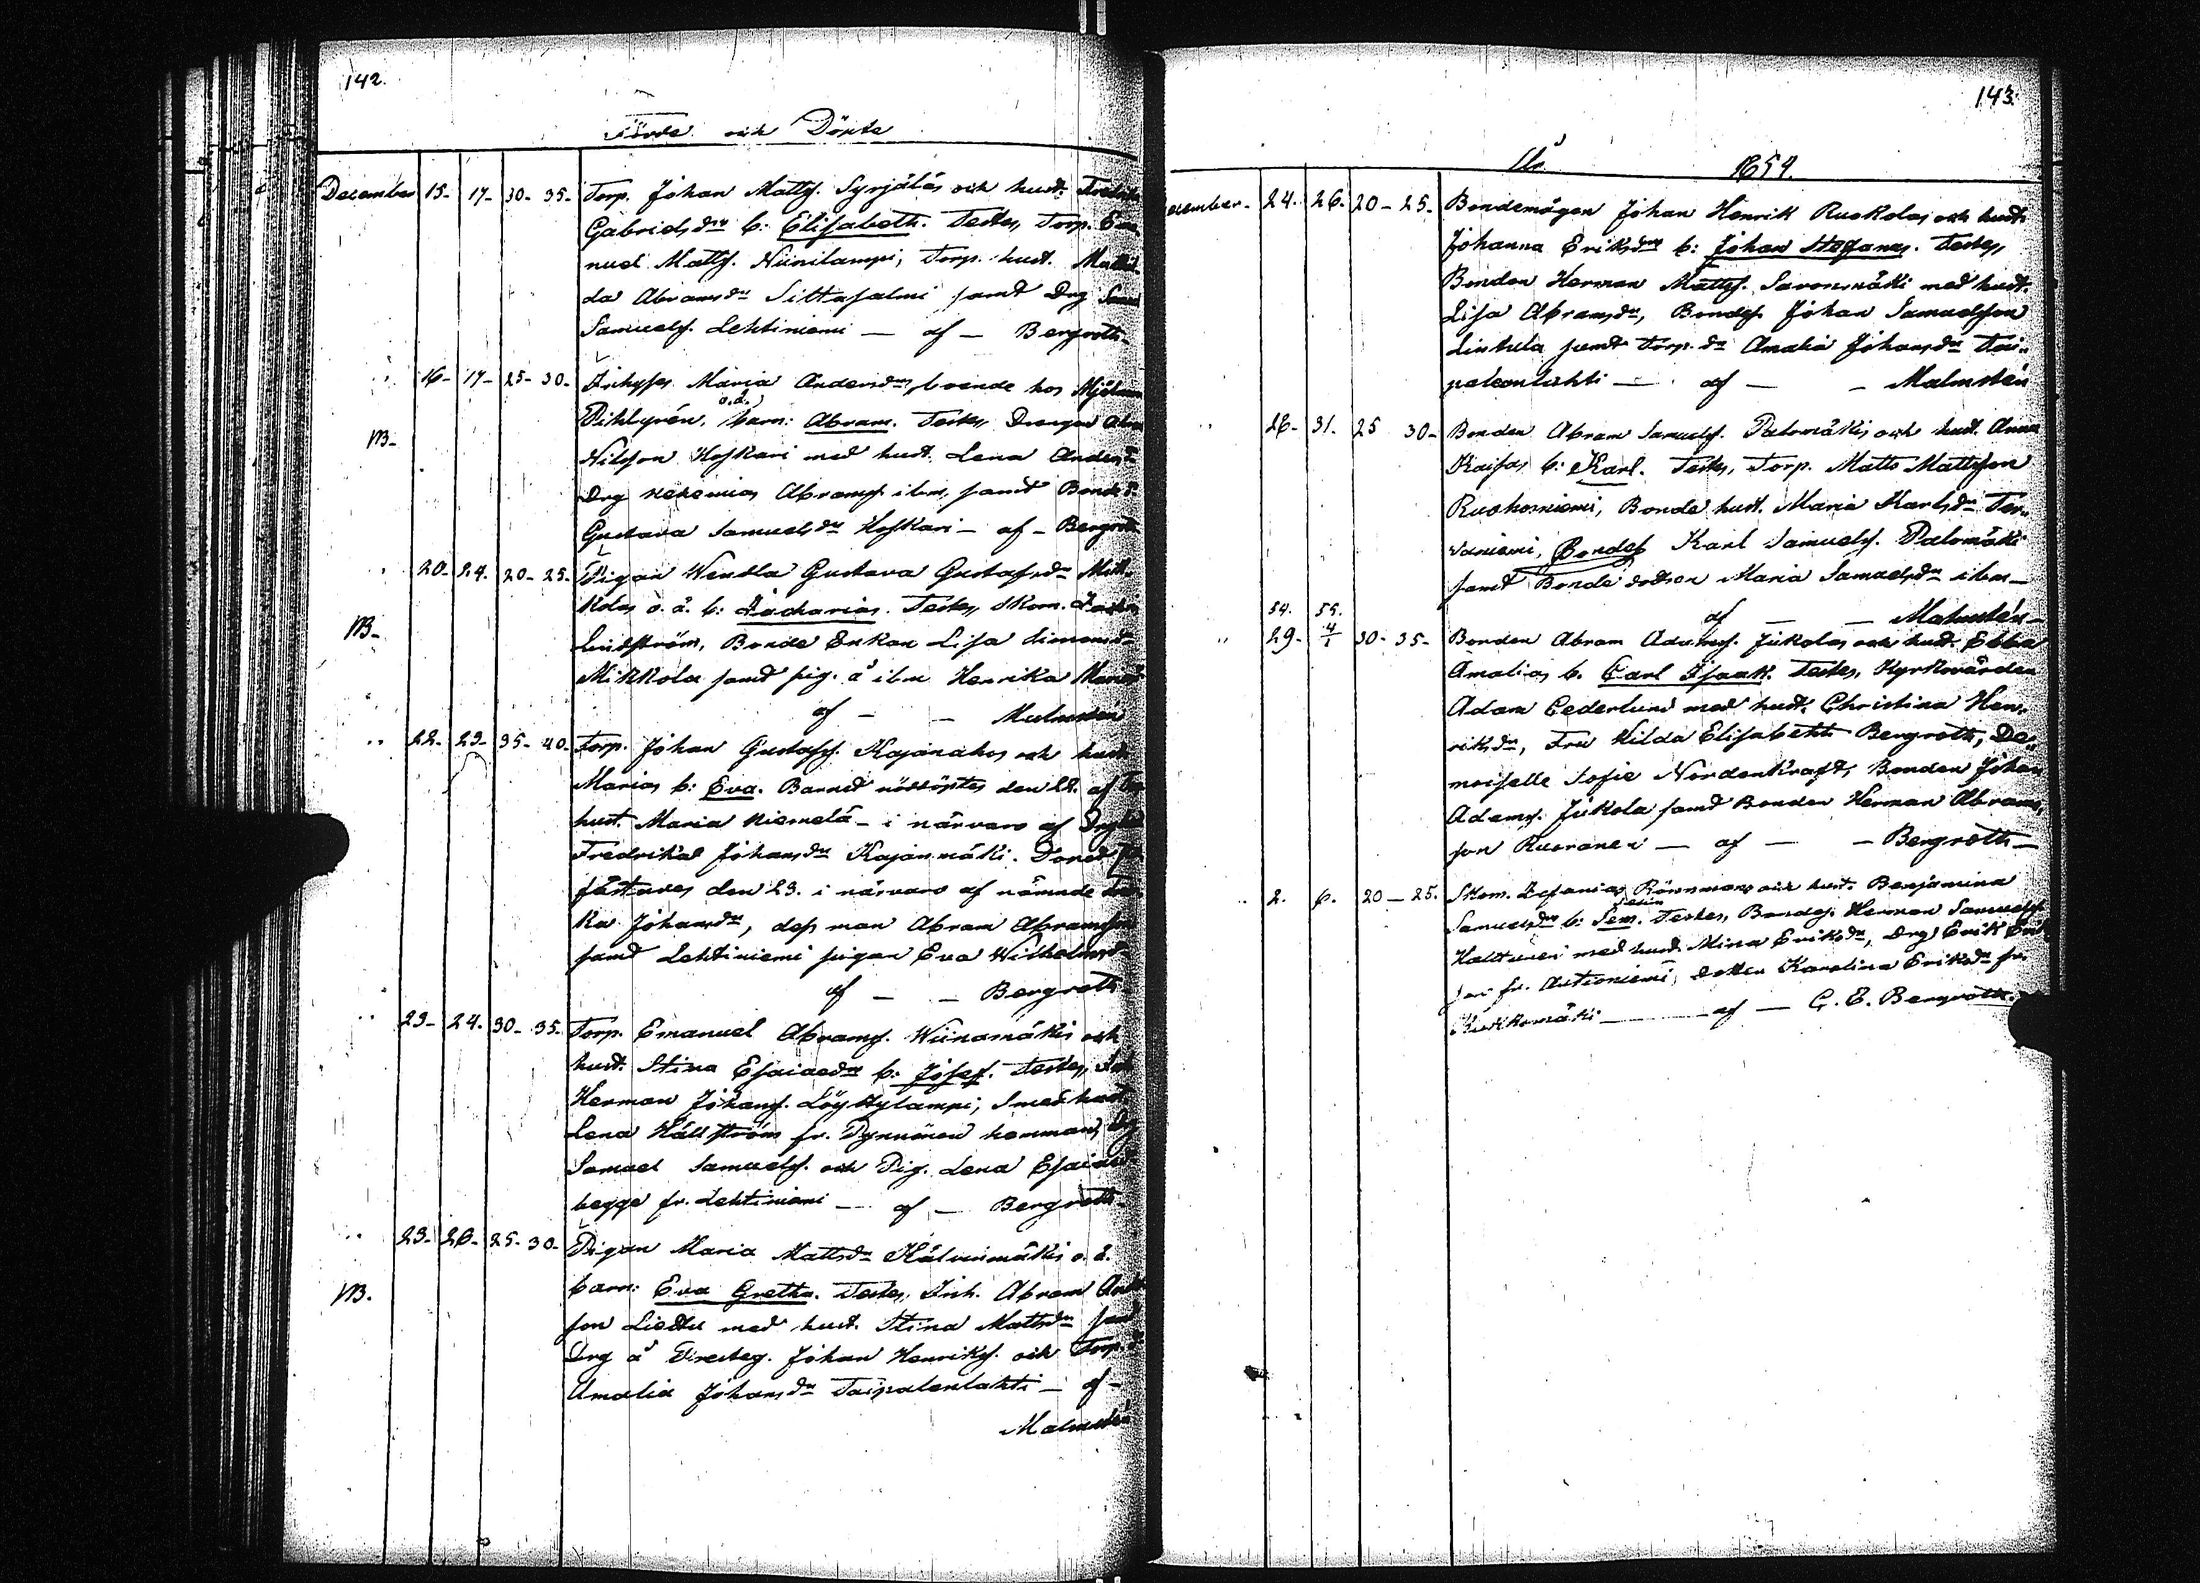 142.
Födde och Döpte
December 15- 17- 30- 35- Torp. Johan Matts. Syrjälä och hust. Fredrika
Gabrielsdr b: Elisabeth. Testes, Torp. Ema
nuel Matts. Niinilampi, Torp. hust. Mathil
da Abramsdr Sillasalmi samt Drg
Samuels. Lehtiniemi — af — Bergroth-
16- 17- 25- 30- Inhyses Maria Andersdr, boende hos
o.ä.
barn: Abram. Testes, Drengen
M-
Nilsson Koskari med hust. Lena Andersdr
Drg Nehemias Abrams. ibm, samt Bonded.
Gustava Samuelsdr Koskari — af — Bergroth
20- 24. 20- 25- Pigan Wendla Gustava Gustafsdr Mik
kola o. ä. b: Zacharias. Testes, Skom.
M-
Lindström, Bonde Enkan Lisa Simonsdr
Mikkola samt pig. å ibm Henrika
af — — Malmstén
22- 23- 35- 40- Torp. Johan Gustafs. Kajanaho och hust.
Maria b: Eva. Barnet nöddöptes den 22. af
hust. Maria Niemelä — i närvaro af
Fredrika Johansdr Kajanmäki. Dopet
fästades den 23. i närvaro af nämnde
ka Johansdr, dess man Abram Abramsson
samt Lehtiniemi pigan Eva Wilhelmsdr
af — — Bergroth
23- 24. 30- 35. Torp. Emanuel Abrams. Wiinamäki och
hust. Stina Esaiaedr b: Josef. Testes,
Herman Johans. Löyttylampi, Smed hust.
Lena Hällström fr. hemman, Drg
Samuel Samuels. och Pig. Lena Esaiaedr
begge fr. Lehtiniemi — af — Bergroth-
23- 26- 25- 30- Pigan Maria Mattsdr Kälvinmäki o. ä.
M.
barn: Eva Gretha. Testes, Inh. Abram
son Liedtu med hust. Stina Mattsdr samt
Drg å Johan Henriks. och Torp.d.
Amalia Johansdr Taipalenlahti — af —
Malmstén
143.
År 1854.
December- 24. 26. 20 - 25- Bondemågen Johan Henrik Ruokola och hust.
Johanna Eriksdr b: Johan Stefanus. Testes,
Bonden Herman Matts. Savonmäki med hust.
Lisa Abramsdr, Bondes. Johan Samuelsson
Lintula samt Torp. dr Amalia Johansdr Tai-
palenlahti — af — — Malmstén
26- 31. 25 30- Bonden Abram Samuels. Palomäki och hust. Anna
Kaisa b: Karl. Testes, Torp. Matts Mattsson
Ruohoniemi, Bonde hust. Maria Karlsdr Ter-
vaniemi, Bondes Karl Samuels. Palomäki
samt Bonde dottren Maria Samuelsdr ibm —
af — — Malmstén-
54. 55.
29- 4/1 30- 35- Bonden Abram Adams. Jukola och hust. Ebba
Amalia b. Carl Isaak. Testes, Kyrkovärden
Adam Cederlund med hust. Christina Hen-
riksdr, Fru Hilda Elisabeth Bergroth, De-
moiselle Sofie Nordenkraft, Bonden Johan
Adams. Jukola samt Bonden Herman Abrams-
son Ruoranen — af — — Bergroth —
2. 6. 20 — 25. Skom. Zefanias Rönnman och hust. Benjamina
Samuelsdr b: Sem. Testes, Bondes. Herman Samuels.
Halttunen med hust. Mina Eriksdr, Drg Erik
fr. Autioniemi, dotter Karolina Eriksdr fr.
— af — G. E. Bergroth.